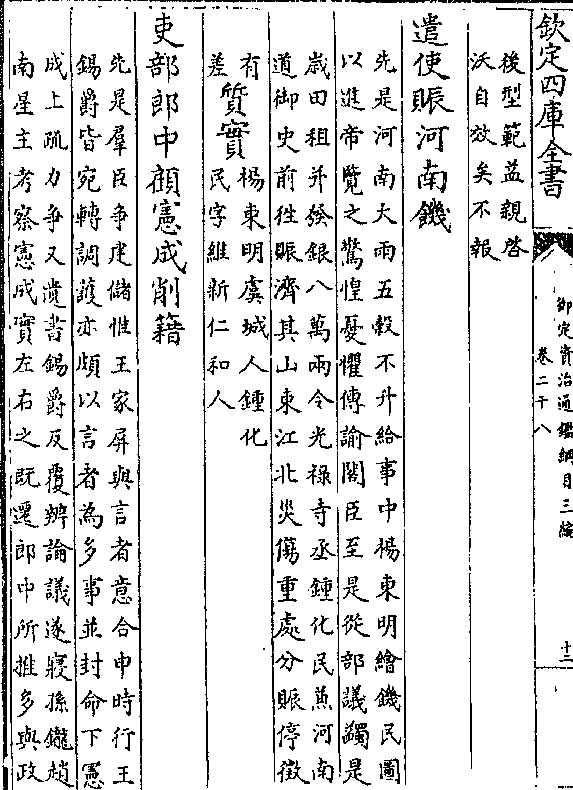 欽定四庫全書
御定資治通鑑綱目三編
卷二十八
十三
後型範益親啓
沃自效矣不報
遣使賑河南饑
先是河南大雨五穀不升給事中楊東明繪饑民圖
以進帝覽之驚惶憂懼傳諭閣臣至是從部議蠲是
歲田租并發銀八萬兩令光祿寺丞鍾化民兼河南
道御史前往賑濟其山東江北災傷重處分賑停徵
有
差
質實
楊東明虞城人鍾化
民字維新仁和人
吏部郎中顧憲成削籍
先是羣臣爭建儲惟王家屏與言者意合申時行王
錫爵皆宛轉調護亦頗以言者為多事並封命下憲
成上疏力爭又遺書錫爵反覆辨論議遂寢孫鑨趙
南星主考察憲成實左右之既遷郎中所推多與政